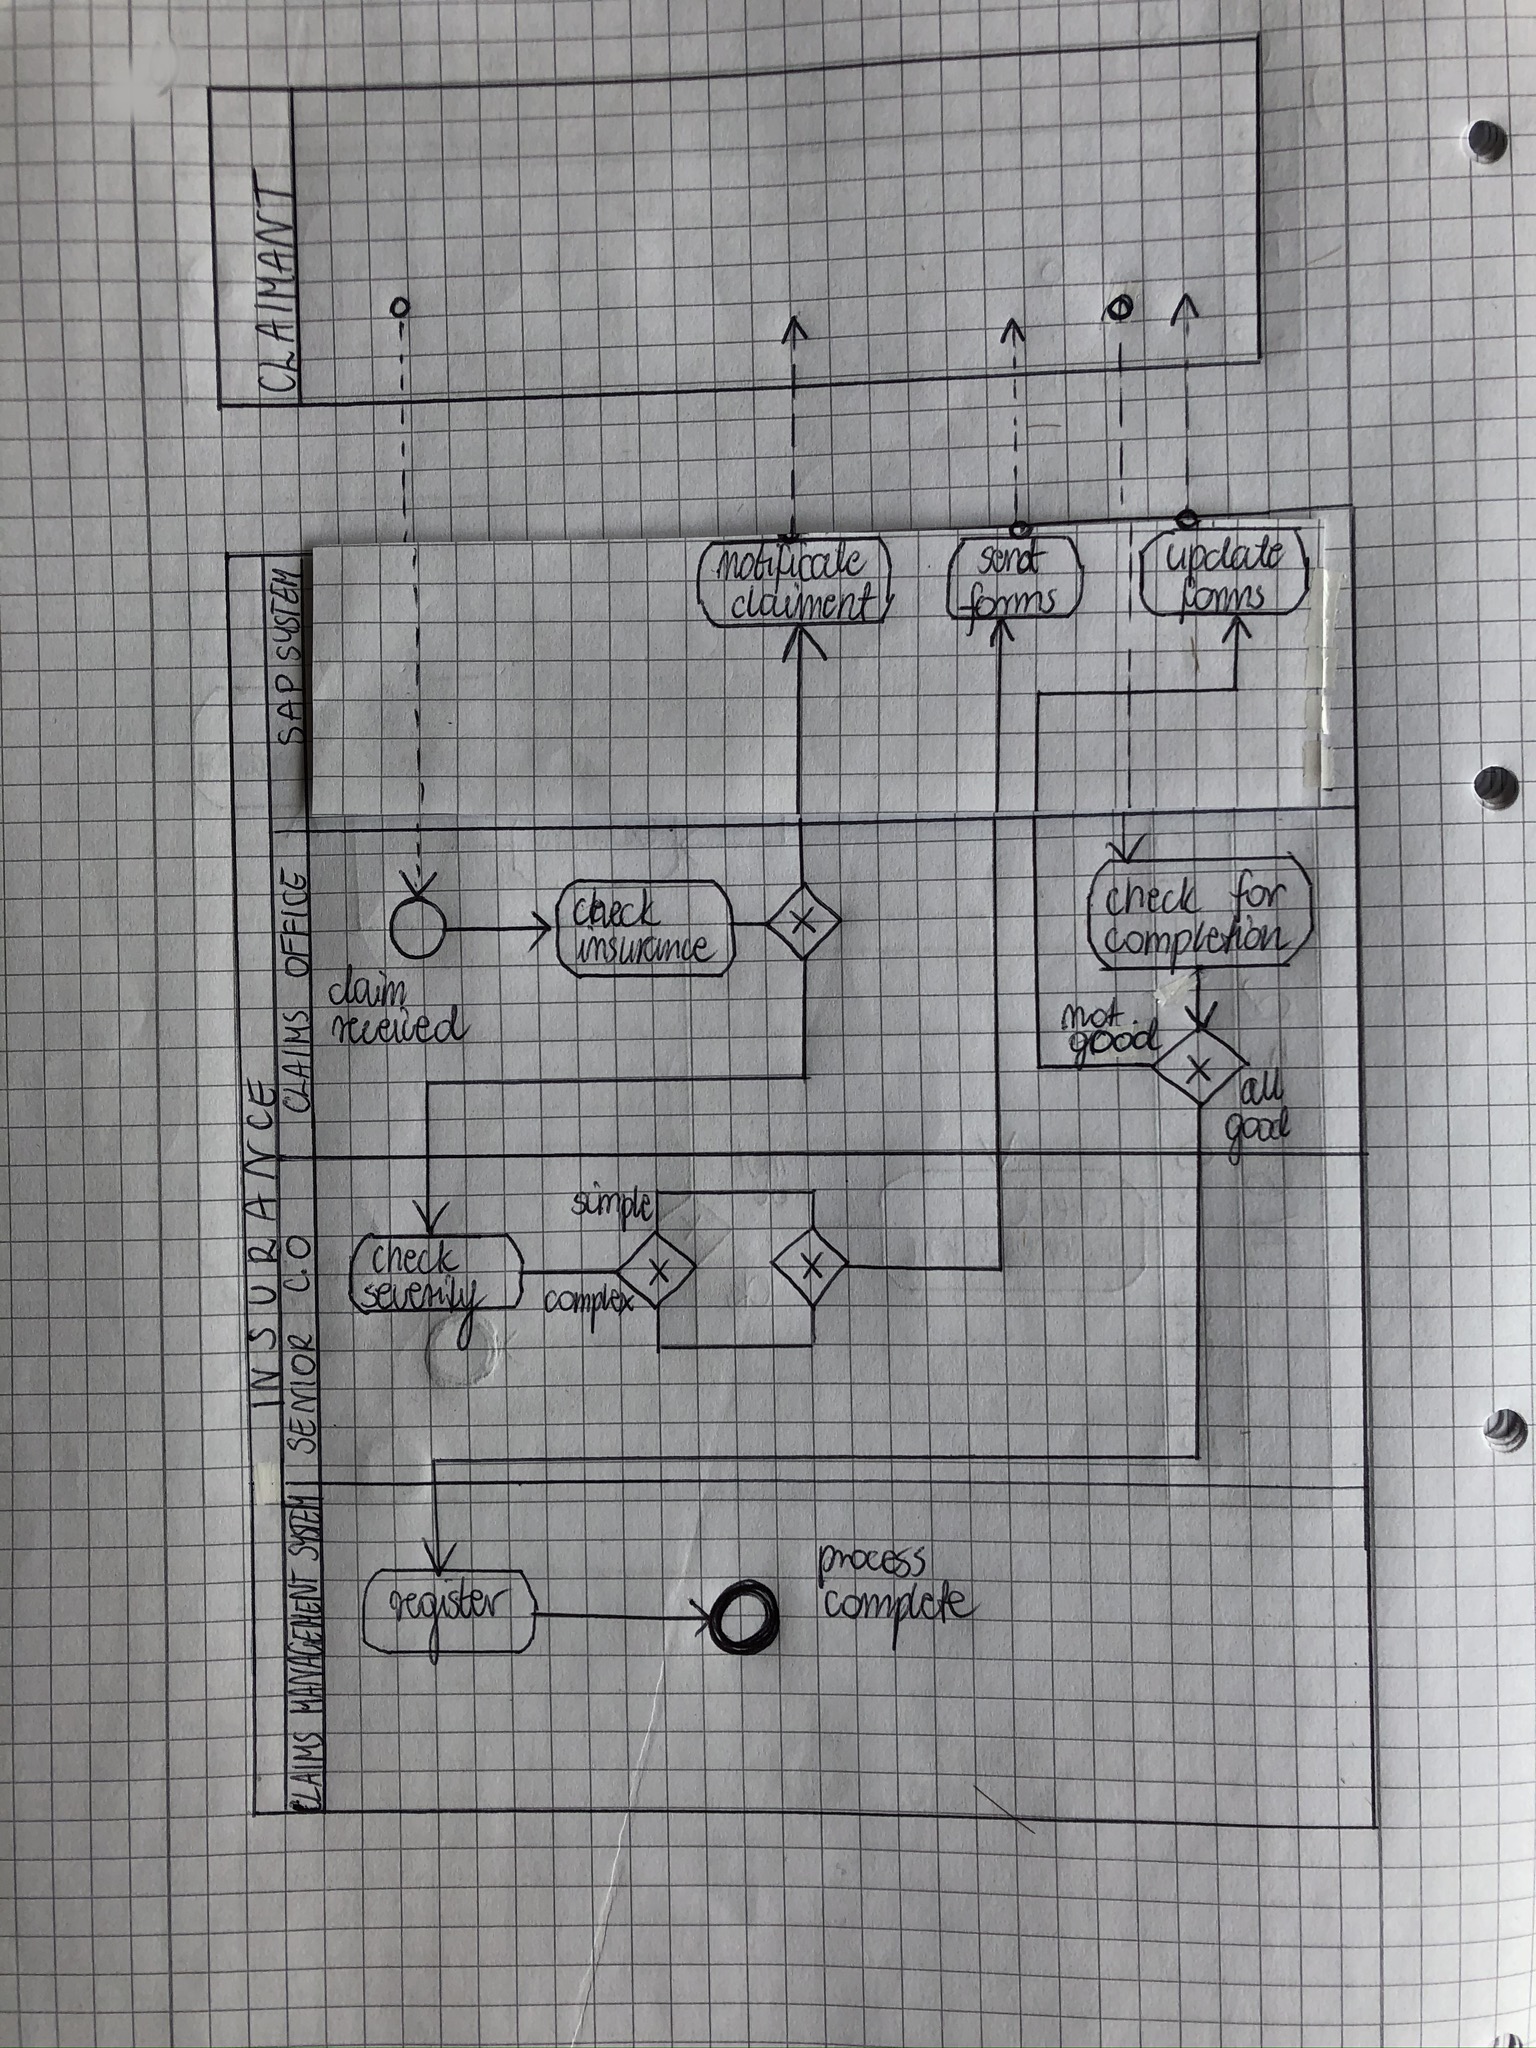 CLAIMANT
INSURANCE
SAP SYSTEM
notificate
claiment
send
forms
update
forms
CLAIMS OFFICE
claim
received
check
insurance
check for
completion
not
good
all
good
SENIOR C.O
check
severity
simple
complex
CLAIMS MANAGEMENT SYSTEM
register
process
complete